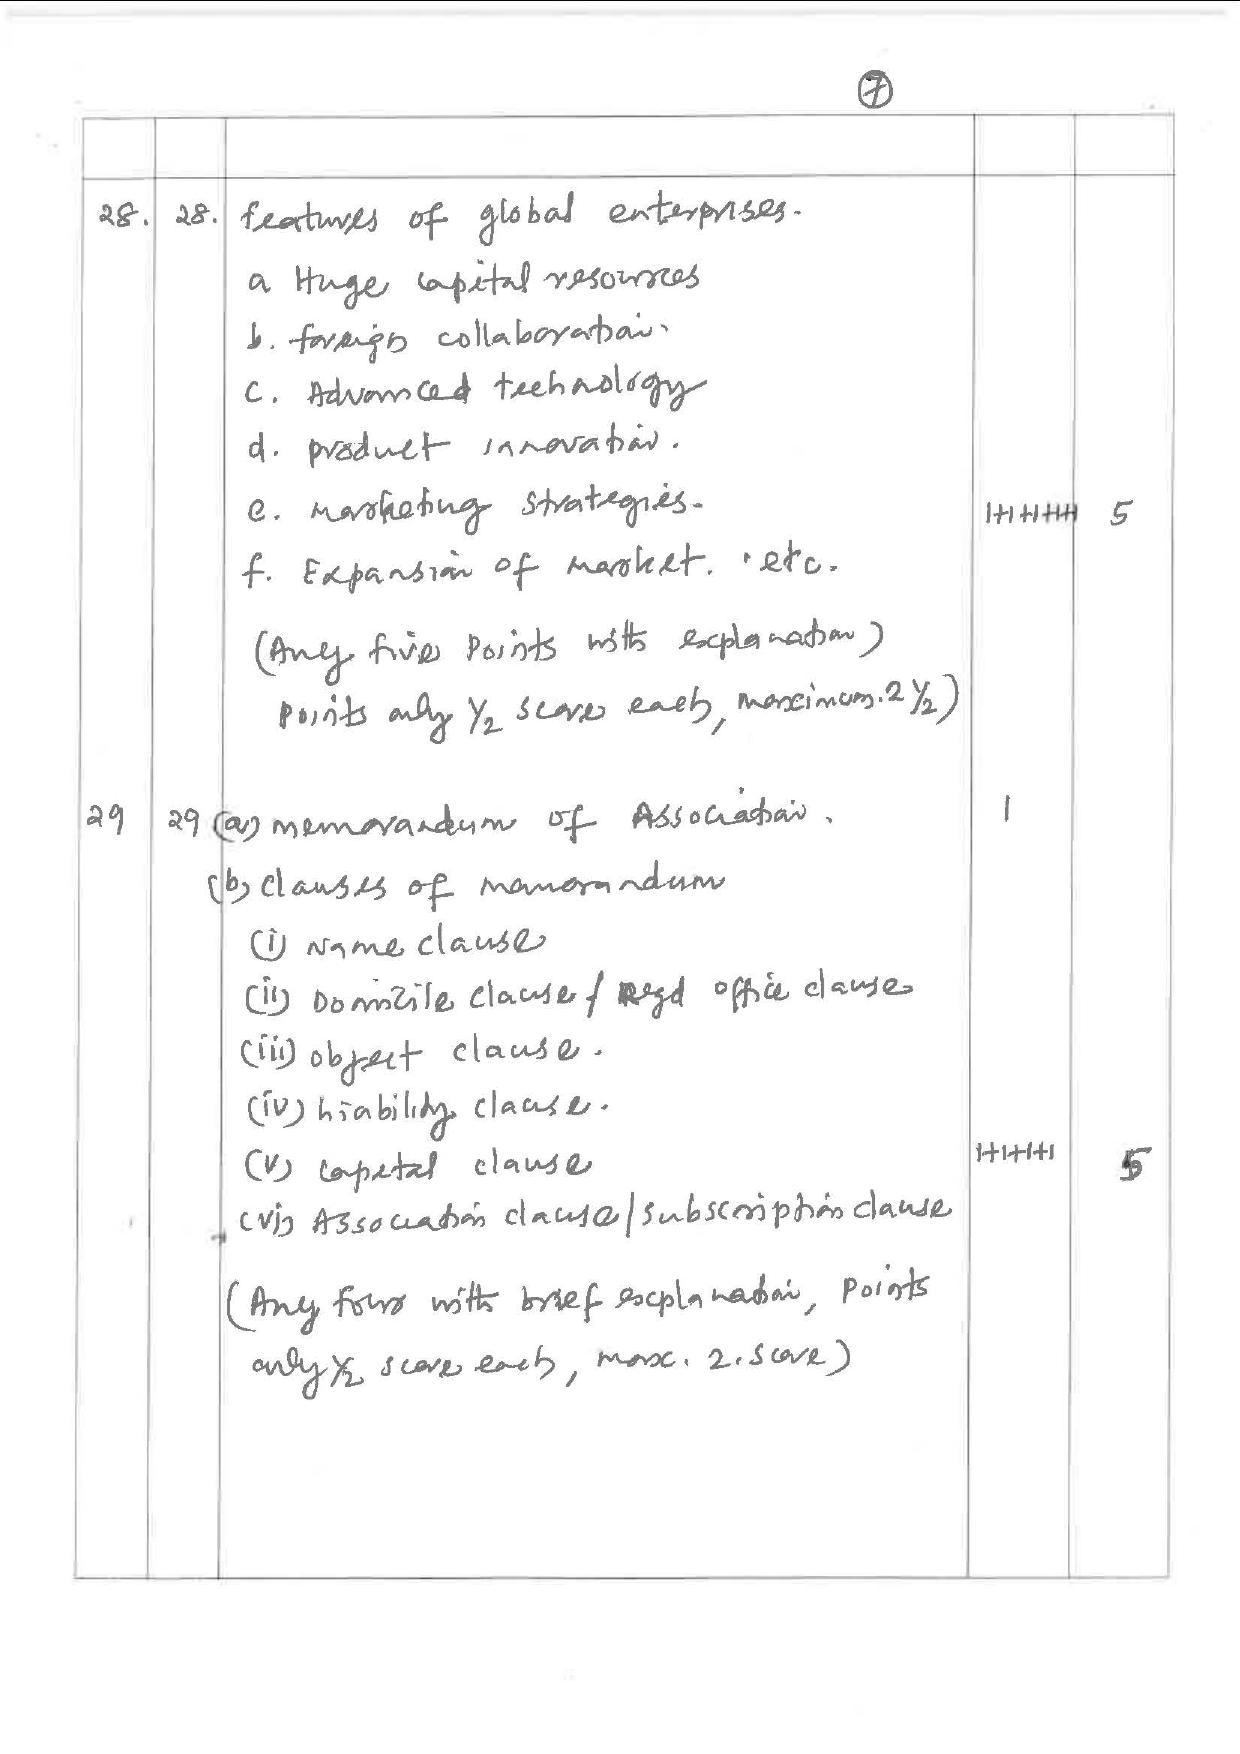 7
28. 28. features of global enterprises.
a Huge capital resources
b. foreign collaboration.
c. Advanced technology
d. product innovation.
e. marketing strategies. 1+1+1+1+1 5
f. Expansion of market. etc.
(Any five points with explanation)
points only 1/2 score each, maximum. 2 1/2)
29 29 (a) memorandum of Association. 1
(b) clauses of memorandum
(i) Name clause
(ii) Domicile clause / Regd office clause
(iii) object clause.
(iv) Liability clause.
(v) capital clause 1+1+1+1 5
(vi) Association clause/subscription clause
(Any four with brief explanation, points
only 1/2 score each, max. 2. score)